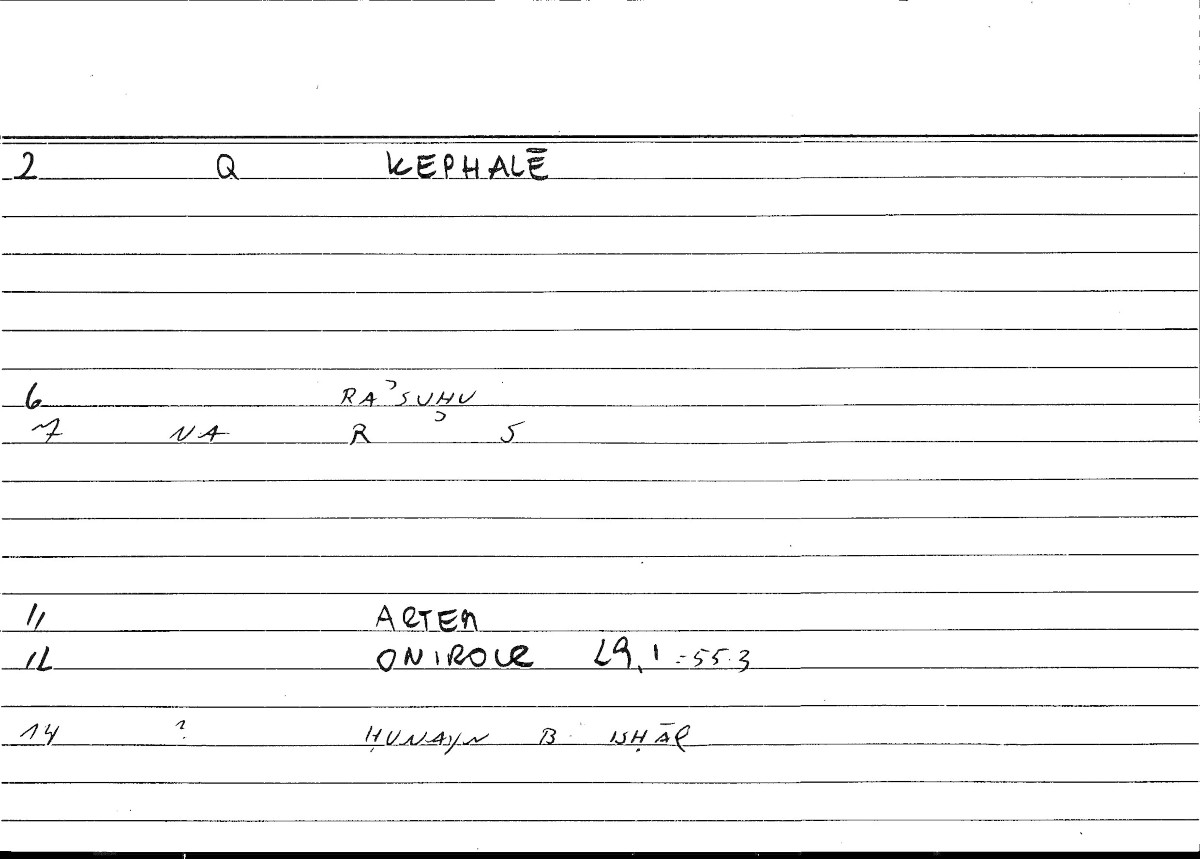 2 Q KEPHALĒ
6 RAʾSUHU
7 NA R ʾ S
11 ARTEM
12 ONIROCR 29,1 = 55.3
14 ? ḤUNAYN B. ISḤĀQ